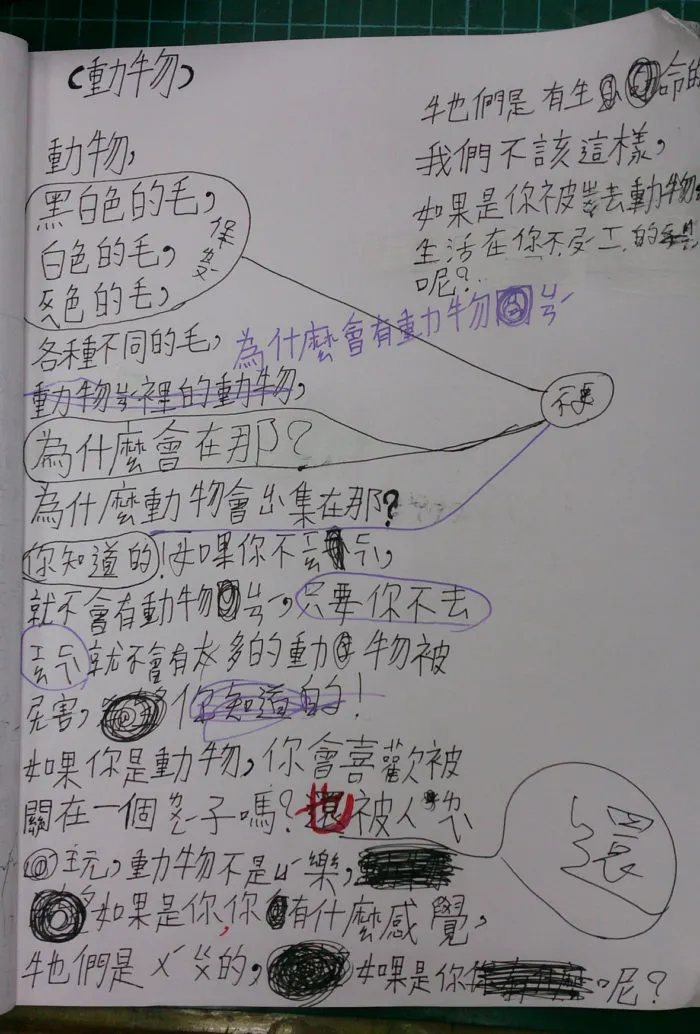 (動物)
動物,
黑白色的毛,
白色的毛,
灰色的毛,
保
各種不同的毛,
為什麼會有動物ㄩㄢˊ
動物裡的動物,
不要
為什麼會在那?
為什麼動物會出集在那?
你知道的!如果你不去
就不會有動物 只要你不去
就不會有太多的動物被
害, 你知道的!
如果你是動物,你會喜歡被
關在一個 子嗎? 也被人
玩,動物不是 樂,
還
如果是你,你有什麼感覺,
牠們是 的, 如果是你 呢?
牠們是有生命的
我們不該這樣,
如果是你被 去動物
生活在你不 的
呢?